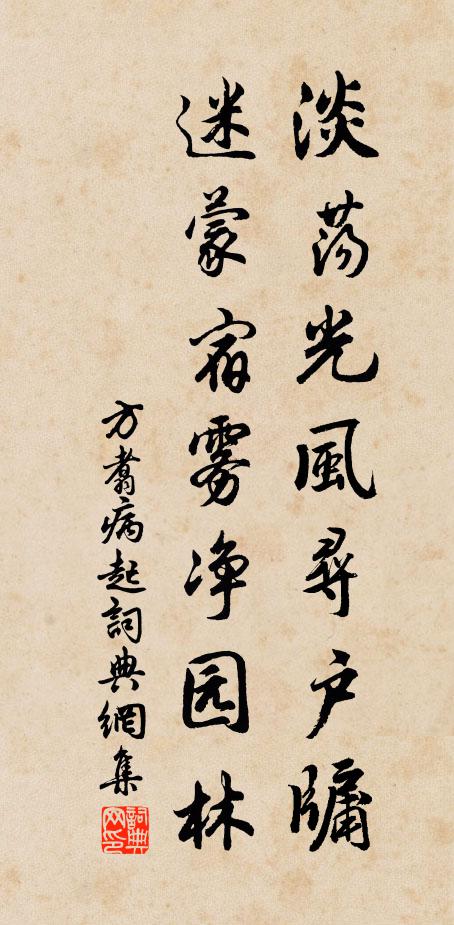 淡荡光風尋户牖
迷蒙宿雾净园林
方翥病起詞典網集
詞典網印